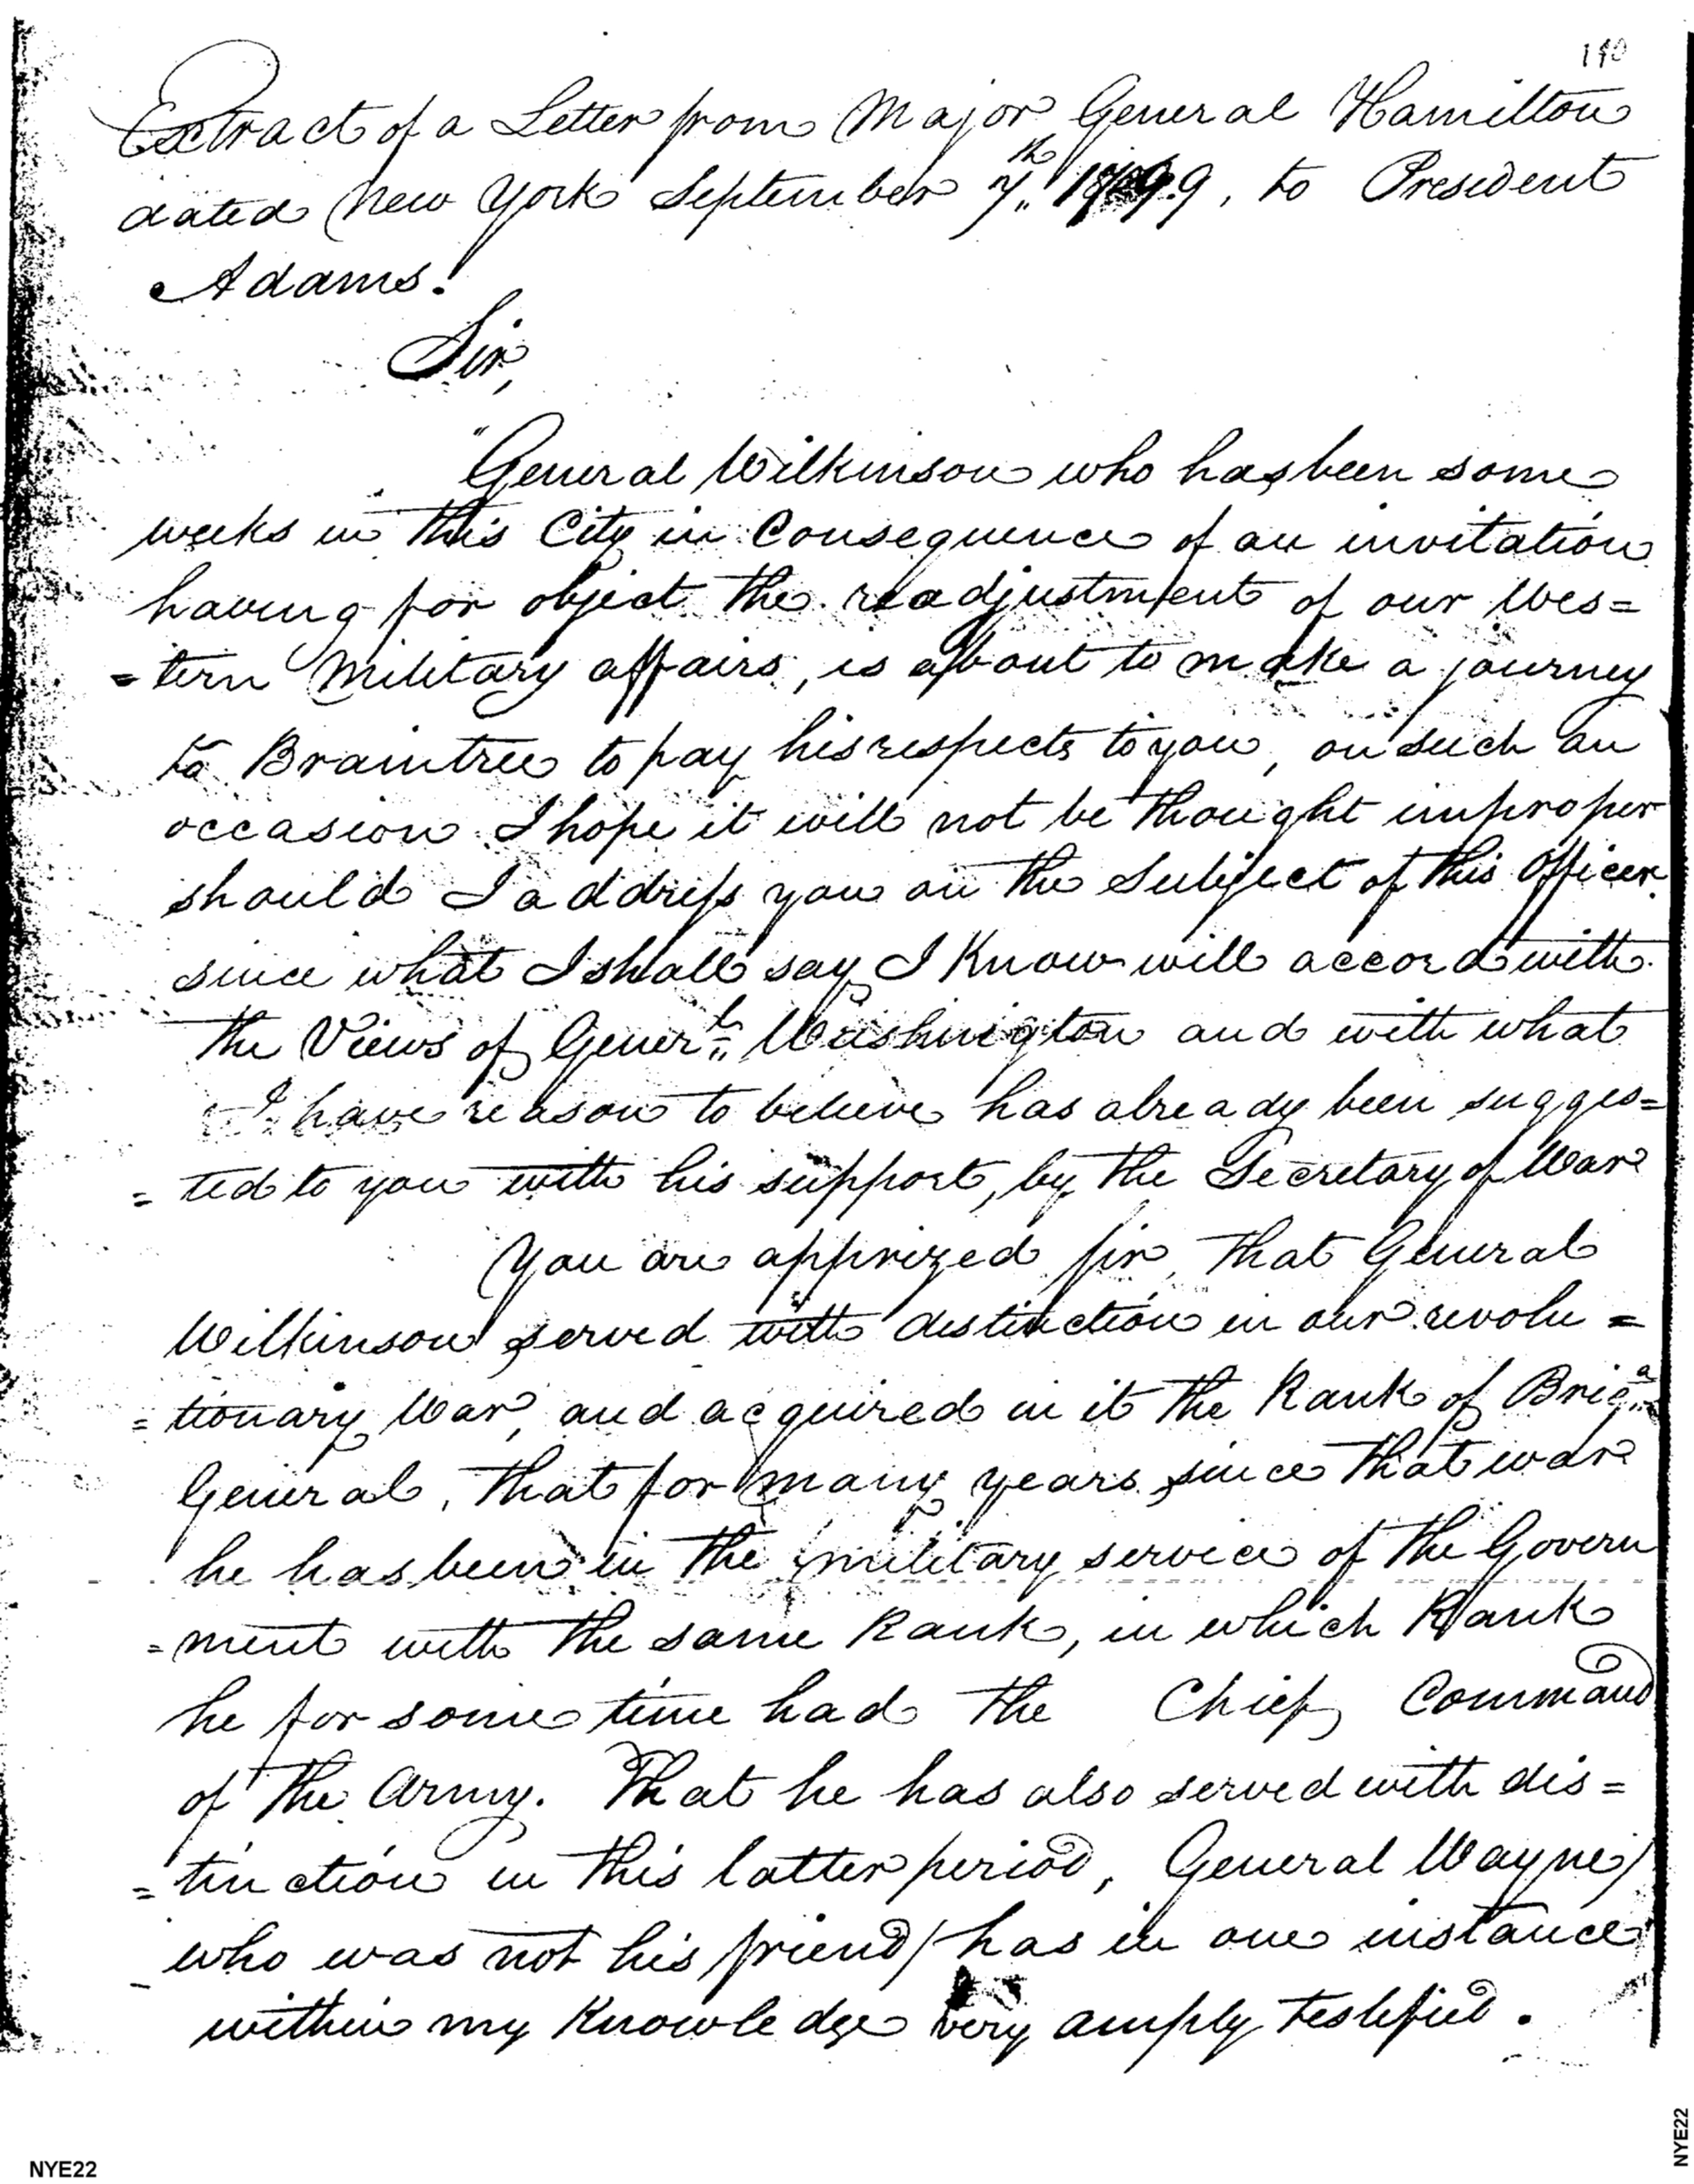 140
Extract of a Letter from Major General Hamilton
dated New York September 7th 1799, to President
Adams.
Sir,
"General Wilkinson who has been some
weeks in this City in Consequence of an invitation
having for object the readjustment of our Wes=
=tern Military affairs, is about to make a journey
to Braintree to pay his respects to you, on such an
occasion I hope it will not be thought improper
should I address you on the Subject of this Officer
since what I shall say I Know will accord with
the Views of Generl. Washington and with what
I have reason to believe has already been sugges=
=ted to you with his support, by the Secretary of War
You are apprized sir, that General
Wilkinson served with distinction in our revolu=
=tionary War, and acquired in it the Rank of Briga.
General, that for many years since that war
he has been in the military service of the Govern
=ment with the same Rank, in which Rank
he for some time had the Chief Command
of the Army. That he has also served with dis=
=tinction in this latter period, General Wayne/
who was not his friend/ has in one instance
within my Knowledge very amply testified.
NYE22
NYE22